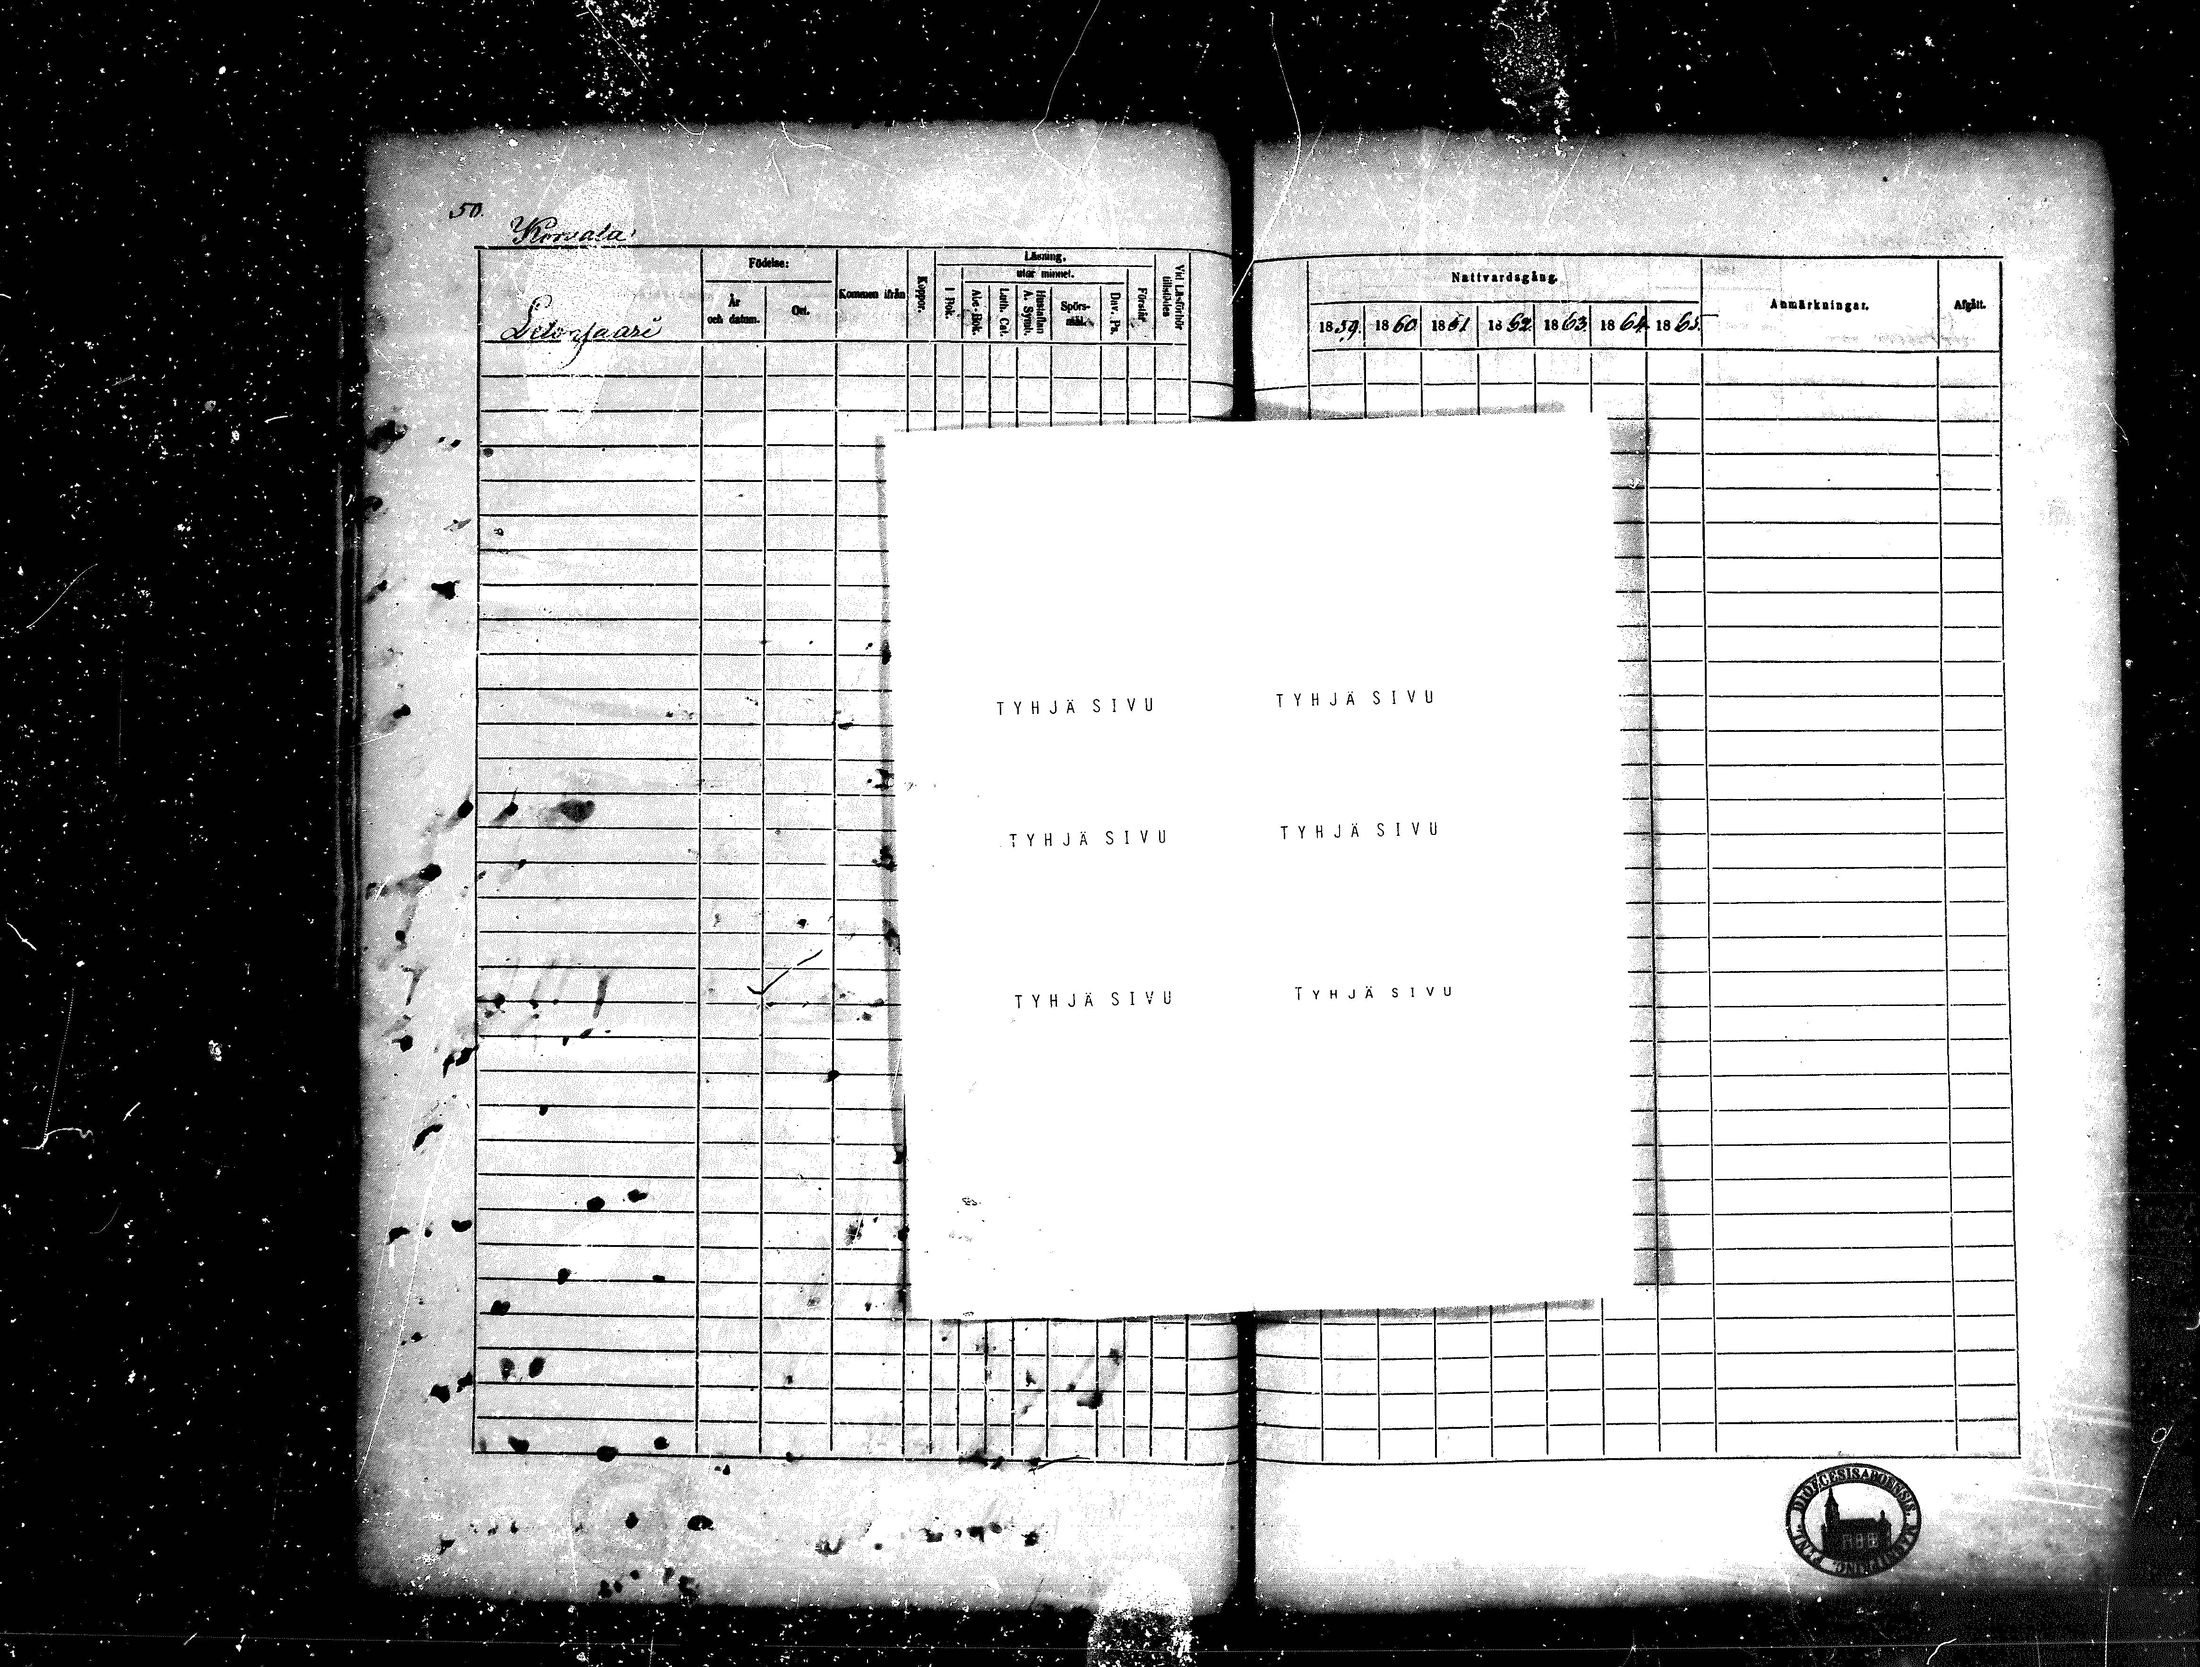 50.
Korvala
Födelse:
År
och datum.
Ort.
Kommen ifrån
Koppor.
Läsning,
utur minnet.
I Bok.
Abc-Bok.
Luth. Cat.
Hustaflan
A. Symb.
Spörs-
mål.
Dav. Ps.
Förstår.
Vid Läsförhör
tillstädes
Nattvardsgång.
1859. 1860 1861 1862. 1863. 1864. 1865.
Anmärkningar.
Afgått.
TYHJÄ SIVU TYHJÄ SIVU
TYHJÄ SIVU TYHJÄ SIVU
TYHJÄ SIVU TYHJÄ SIVU
DIOECESIS ABOENSIS